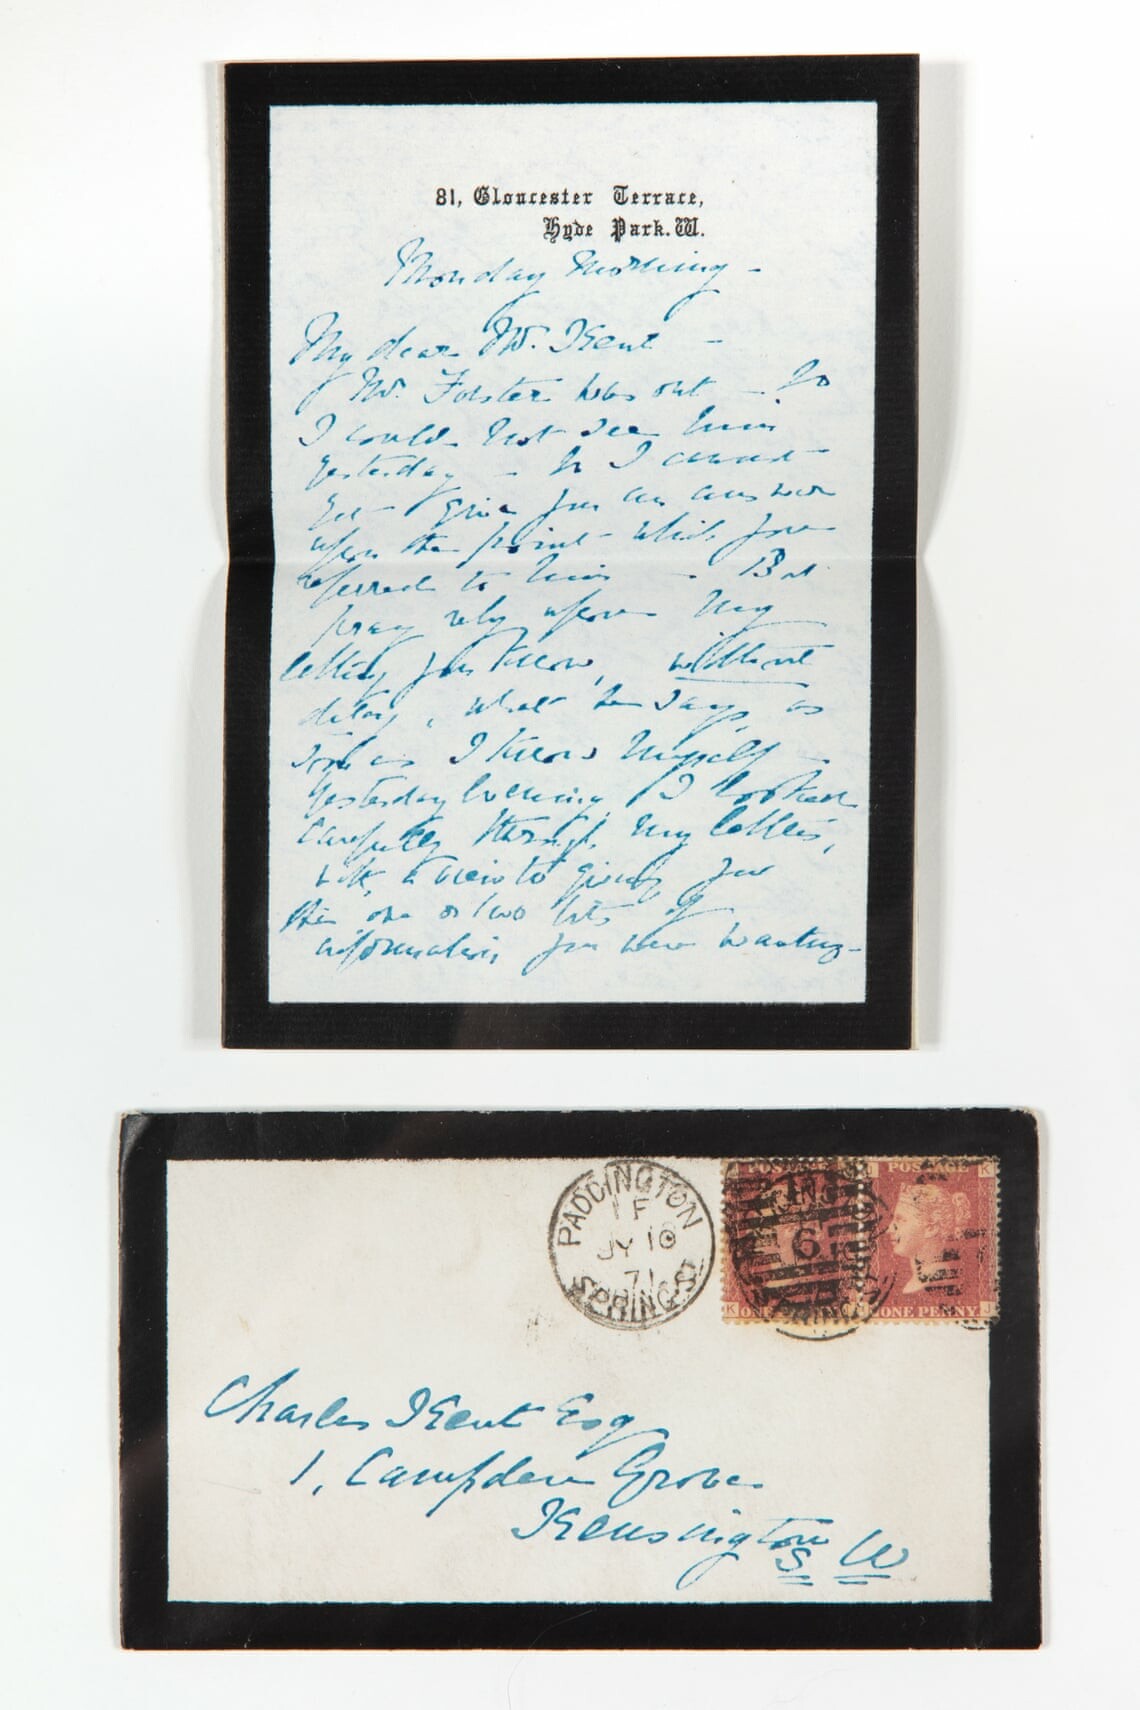 81, Gloucester Terrace,
Hyde Park. W.
Monday Morning -
My dear Mr. Kent -
Mr. Forster was out - So
I could not see him
yesterday - So I cannot
yet give you an answer
upon the point which you
referred to him - But
pray rely upon my
letting you know, without
delay, what he says, as
soon as I know myself -
Yesterday Evening I looked
carefully through my letters,
with a view to giving you
the one or two bits of
information you were wanting -
PADDINGTON
1 F
JY 10
71
SPRING St
POSTAGE
POSTAGE K
6
K ONE PENNY
ONE PENNY. J
Charles Kent Esq
1, Campden Grove
Kensington
S W